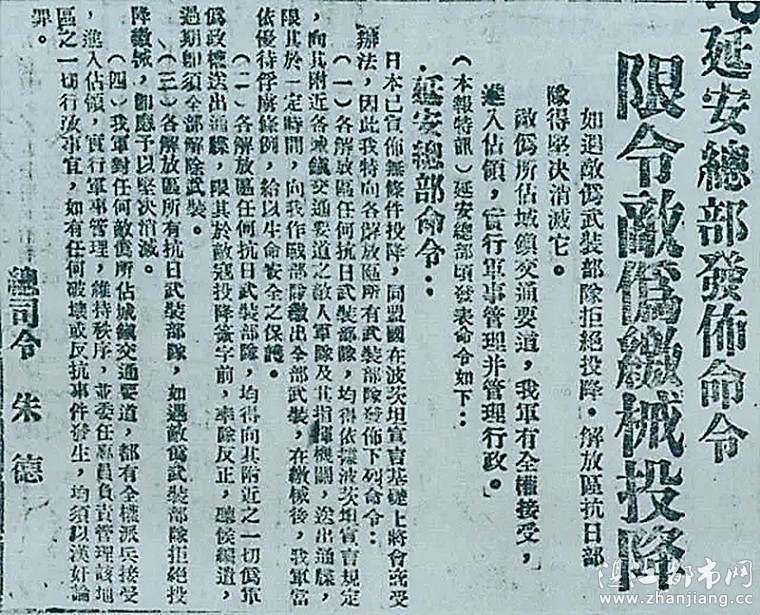 延安總部發佈命令
限令敵僞繳械投降
如遇敵僞武裝部隊拒絕投降，解放區抗日部
隊得堅決消滅它。
敵僞所佔城鎮交通要道，我軍有全權接受，
進入佔領，實行軍事管理并管理行政。
（本報特訊）延安總部頃發表命令如下：
延安總部命令：
日本已宣佈無條件投降，同盟國在波茨坦宣言基礎上將會商受
降辦法，因此我特向各解放區所有武裝部隊發佈下列命令：
（一）各解放區任何抗日武裝部隊，均得依據波茨坦宣言規定
，向其附近各城鎮交通要道之敵人軍隊及其指揮機關，送出通牒，
限其於一定時間，向我作戰部隊繳出全部武裝，在繳械後，我軍當
依優待俘虜條例，給以生命安全之保護。
（二）各解放區任何抗日武裝部隊，均得向其附近之一切僞軍
僞政權送出通牒，限其於敵寇投降簽字前，率隊反正，聽候編遣，
過期即須全部解除武裝。
（三）各解放區所有抗日武裝部隊，如遇敵僞武裝部隊拒絕投
降繳械，即應予以堅決消滅。
（四）我軍對任何敵僞所佔城鎮交通要道，都有全權派兵接受
，進入佔領，實行軍事管理，維持秩序，並委任專員負責管理該地
區之一切行政事宜，如有任何破壞或反抗事件發生，均須以漢奸論
罪。
總司令 朱德
湛江都市网
www.zhanjiang.cc